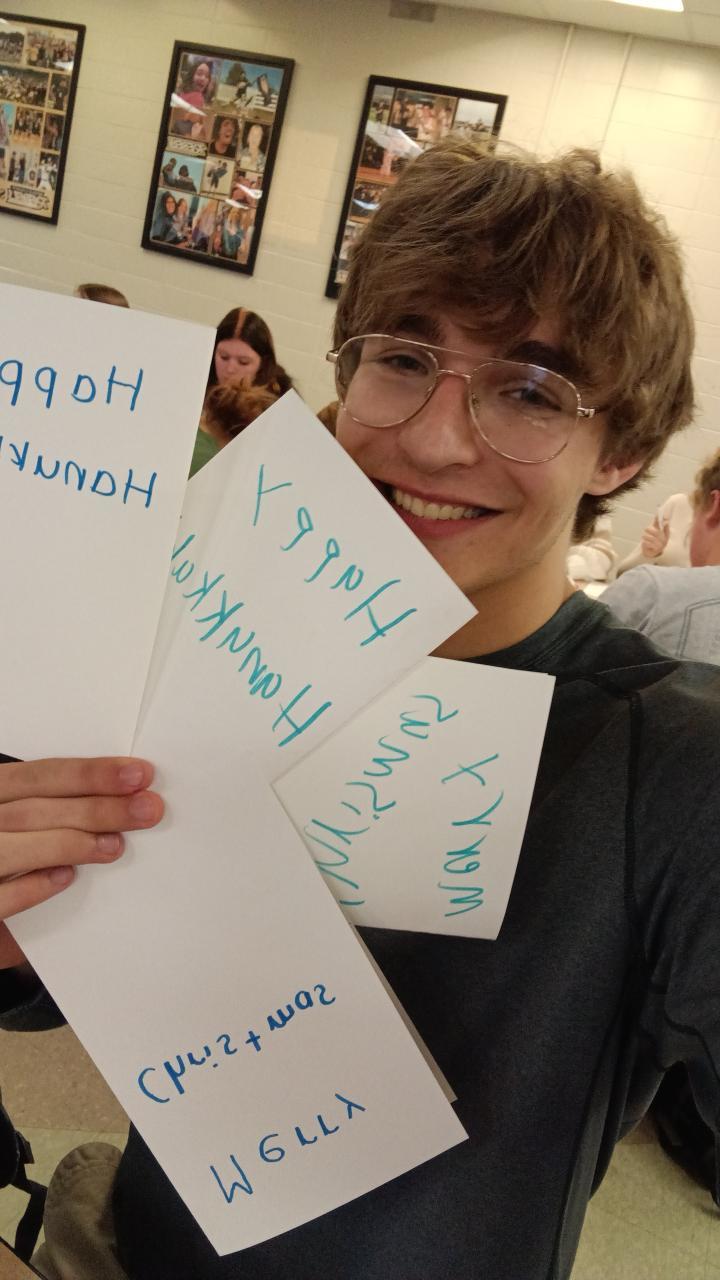 Happ
Hanuk
Happy
Hanukkah
Merry
Christmas
Merry
Christmas